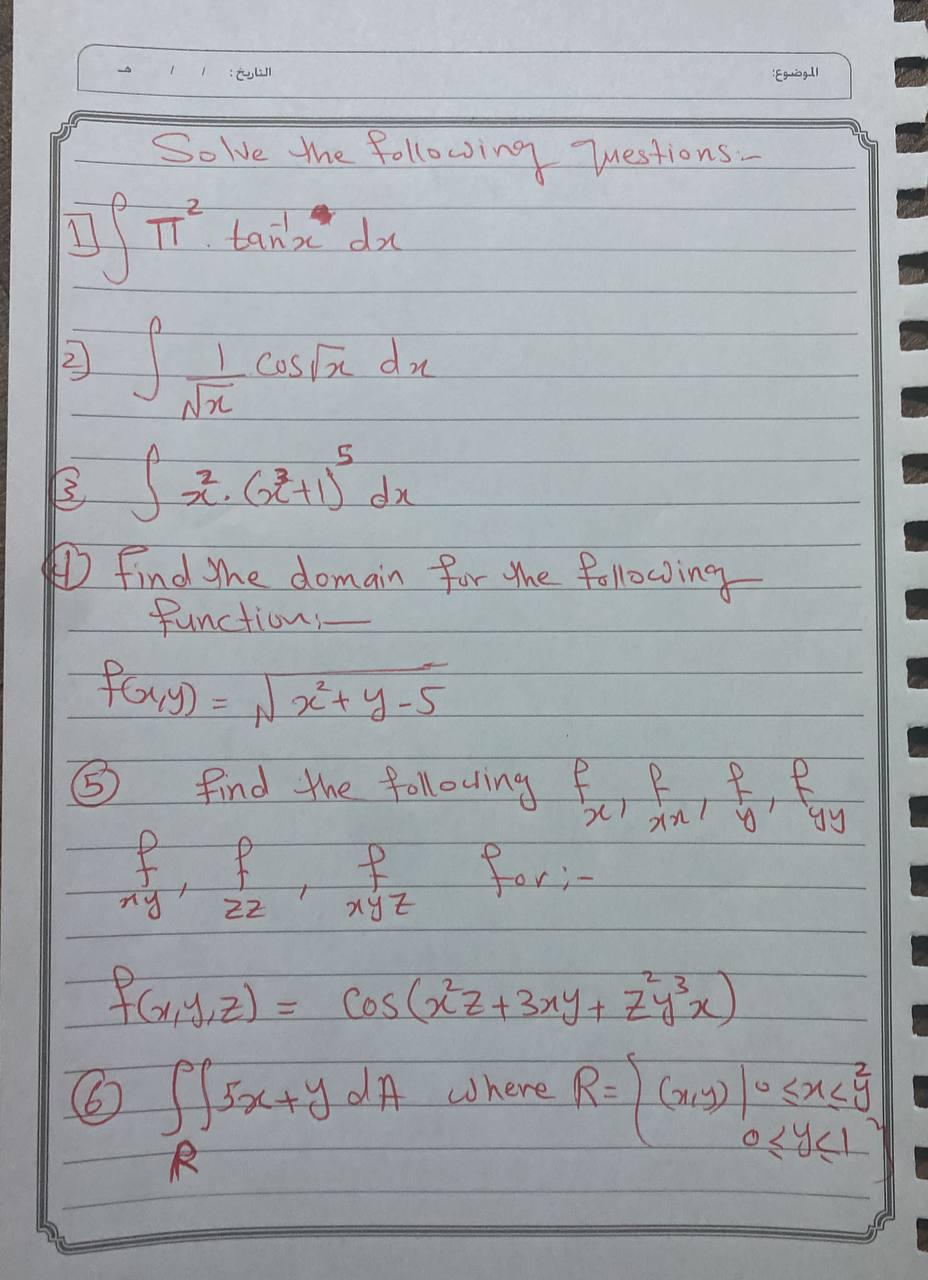 الموضوع: التاريخ: / / هـ
Solve the following questions:-
1] ∫ π² . tan⁻¹x dx
2] ∫ 1/√x cos√x dx
③ ∫ x² . (x³+1)⁵ dx
④ find the domain for the following
function:-
f(x,y) = √(x²+y-5)
⑤ find the following f_x, f_xx, f_y, f_yy
f_xy, f_zz, f_xyz for:-
f(x,y,z) = cos(x²z+3xy+z²y³x)
⑥ ∫∫_R 5x+y dA where R= {(x,y) | 0≤x≤y²
0≤y≤1}